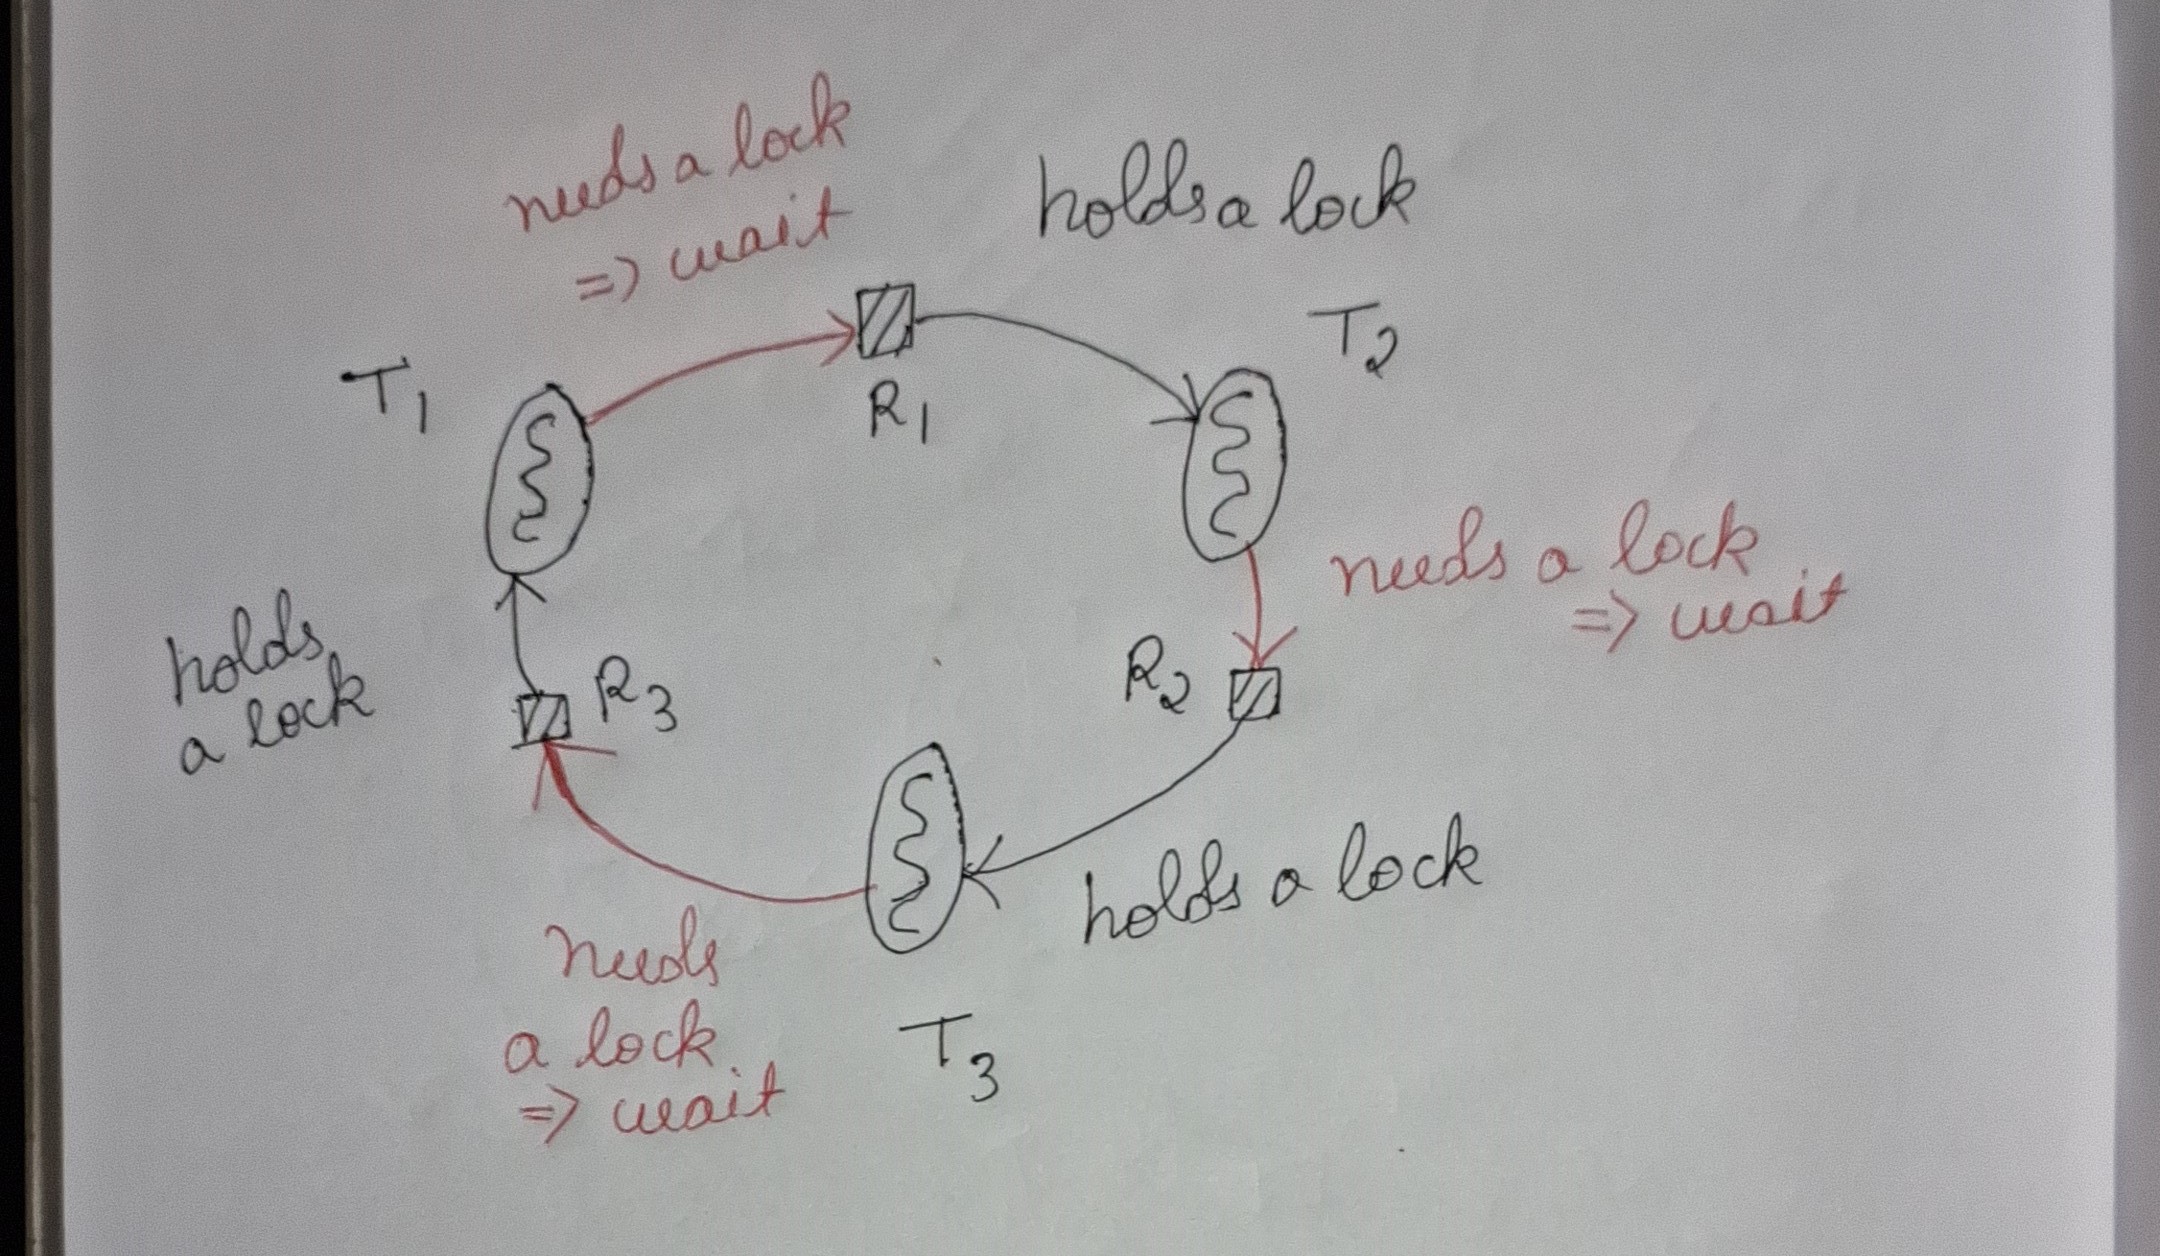 needs a lock
=> wait
holds a lock
T1
R1
T2
needs a lock
=> wait
holds
a lock
R3
R2
holds a lock
needs
a lock
=> wait
T3